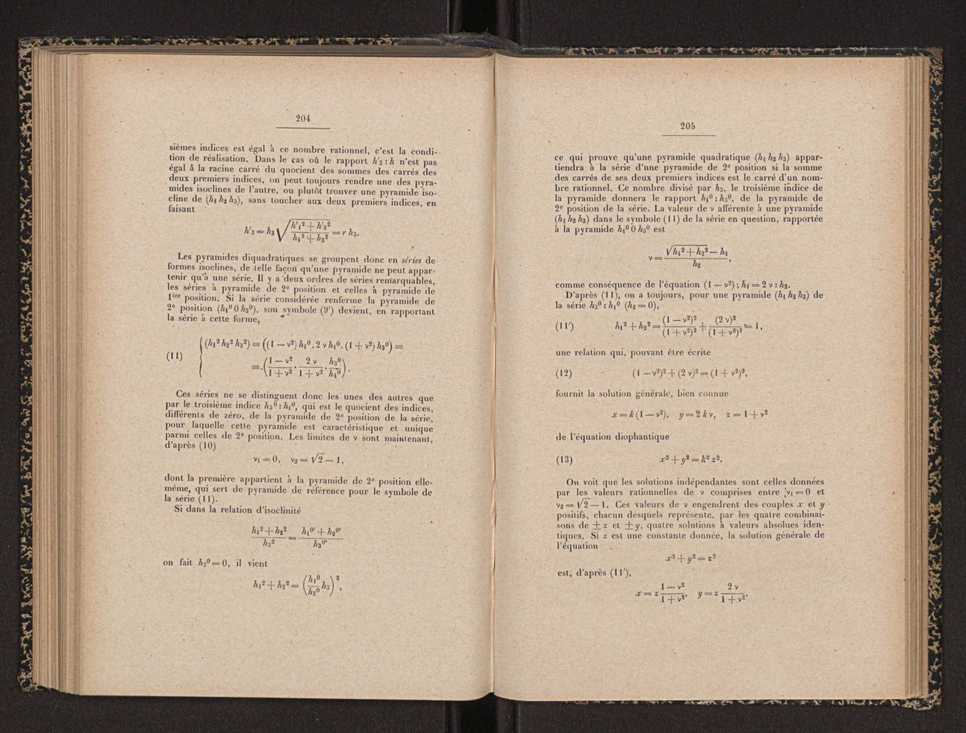 204
sièmes indices est égal à ce nombre rationnel, c'est la condi-
tion de réalisation. Dans le cas où le rapport h'₃ : h n'est pas
égal à la racine carré du quocient des sommes des carrés des
deux premiers indices, on peut toujours rendre une des pyra-
mides isoclines de l'autre, ou plutôt trouver une pyramide iso-
cline de (h₁ h₂ h₃), sans toucher aux deux premiers indices, en
faisant
h'₃ = h₃ √((h'₁² + h'₂²)/(h₁² + h₂²)) = r h₃.
Les pyramides diquadratiques se groupent donc en séries de
formes isoclines, de telle façon qu'une pyramide ne peut appar-
tenir qu'à une série. Il y a deux ordres de séries remarquables,
les séries à pyramide de 2ᵉ position et celles à pyramide de
1ᵉʳᵉ position. Si la série considérée renferme la pyramide de
2ᵉ position (h₁⁰ 0 h₃⁰), son symbole (9') devient, en rapportant
la série à cette forme,
(11) { (h₁² h₂² h₃²) = ((1 — ν²) h₁⁰. 2 ν h₁⁰. (1 + ν²) h₃⁰) =
= ((1 — ν²)/(1 + ν²) . 2 ν/(1 + ν²) . h₃⁰/h₁⁰).
Ces séries ne se distinguent donc les unes des autres que
par le troisième indice h₃⁰ : h₁⁰, qui est le quocient des indices,
différents de zéro, de la pyramide de 2ᵉ position de la série,
pour laquelle cette pyramide est caractéristique et unique
parmi celles de 2ᵉ position. Les limites de ν sont maintenant,
d'après (10)
ν₁ = 0, ν₂ = √2 — 1,
dont la première appartient à la pyramide de 2ᵉ position elle-
même, qui sert de pyramide de référence pour le symbole de
la série (11).
Si dans la relation d'isoclinité
(h₁² + h₂²)/h₃² = (h₁⁰' + h₂⁰')/h₃⁰'
on fait h₂⁰ = 0, il vient
h₁² + h₂² = (h₁⁰/h₃⁰ h₃)²,
205
ce qui prouve qu'une pyramide quadratique (h₁ h₂ h₃) appar-
tiendra à la série d'une pyramide de 2ᵉ position si la somme
des carrés de ses deux premiers indices est le carré d'un nom-
bre rationnel. Ce nombre divisé par h₃, le troisième indice de
la pyramide donnera le rapport h₁⁰ : h₃⁰, de la pyramide de
2ᵉ position de la série. La valeur de ν afférente à une pyramide
(h₁ h₂ h₃) dans le symbole (11) de la série en question, rapportée
à la pyramide h₁⁰ 0 h₃⁰ est
ν = (√(h₁² + h₂²) — h₁)/h₂,
comme conséquence de l'équation (1 — ν²) ; h₁ = 2 ν : h₂.
D'après (11), on a toujours, pour une pyramide (h₁ h₂ h₃) de
la série h₃⁰ : h₁⁰ (h₂ = 0),
(11') h₁² + h₂² = (1 — ν²)²/(1 + ν²)² + (2 ν)²/(1 + ν²)² = 1,
une relation qui, pouvant être écrite
(12) (1 — ν²)² + (2 ν)² = (1 + ν²)²,
fournit la solution générale, bien connue
x = k (1 — ν²), y = 2 k ν, z = 1 + ν²
de l'équation diophantique
(13) x² + y² = k² z².
On voit que les solutions indépendantes sont celles données
par les valeurs rationnelles de ν comprises entre ν₁ = 0 et
ν₂ = √2 — 1. Ces valeurs de ν engendrent des couples x et y
positifs, chacun desquels représente, par les quatre combinai-
sons de ± x et ± y, quatre solutions à valeurs absolues iden-
tiques. Si z est une constante donnée, la solution générale de
l'équation
x² + y² = z²
est, d'après (11'),
x = z (1 — ν²)/(1 + ν²), y = z 2 ν/(1 + ν²).